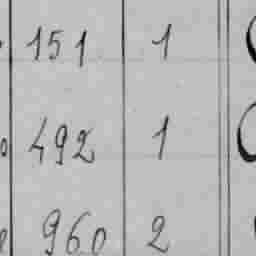 151 1
492 1
960 2